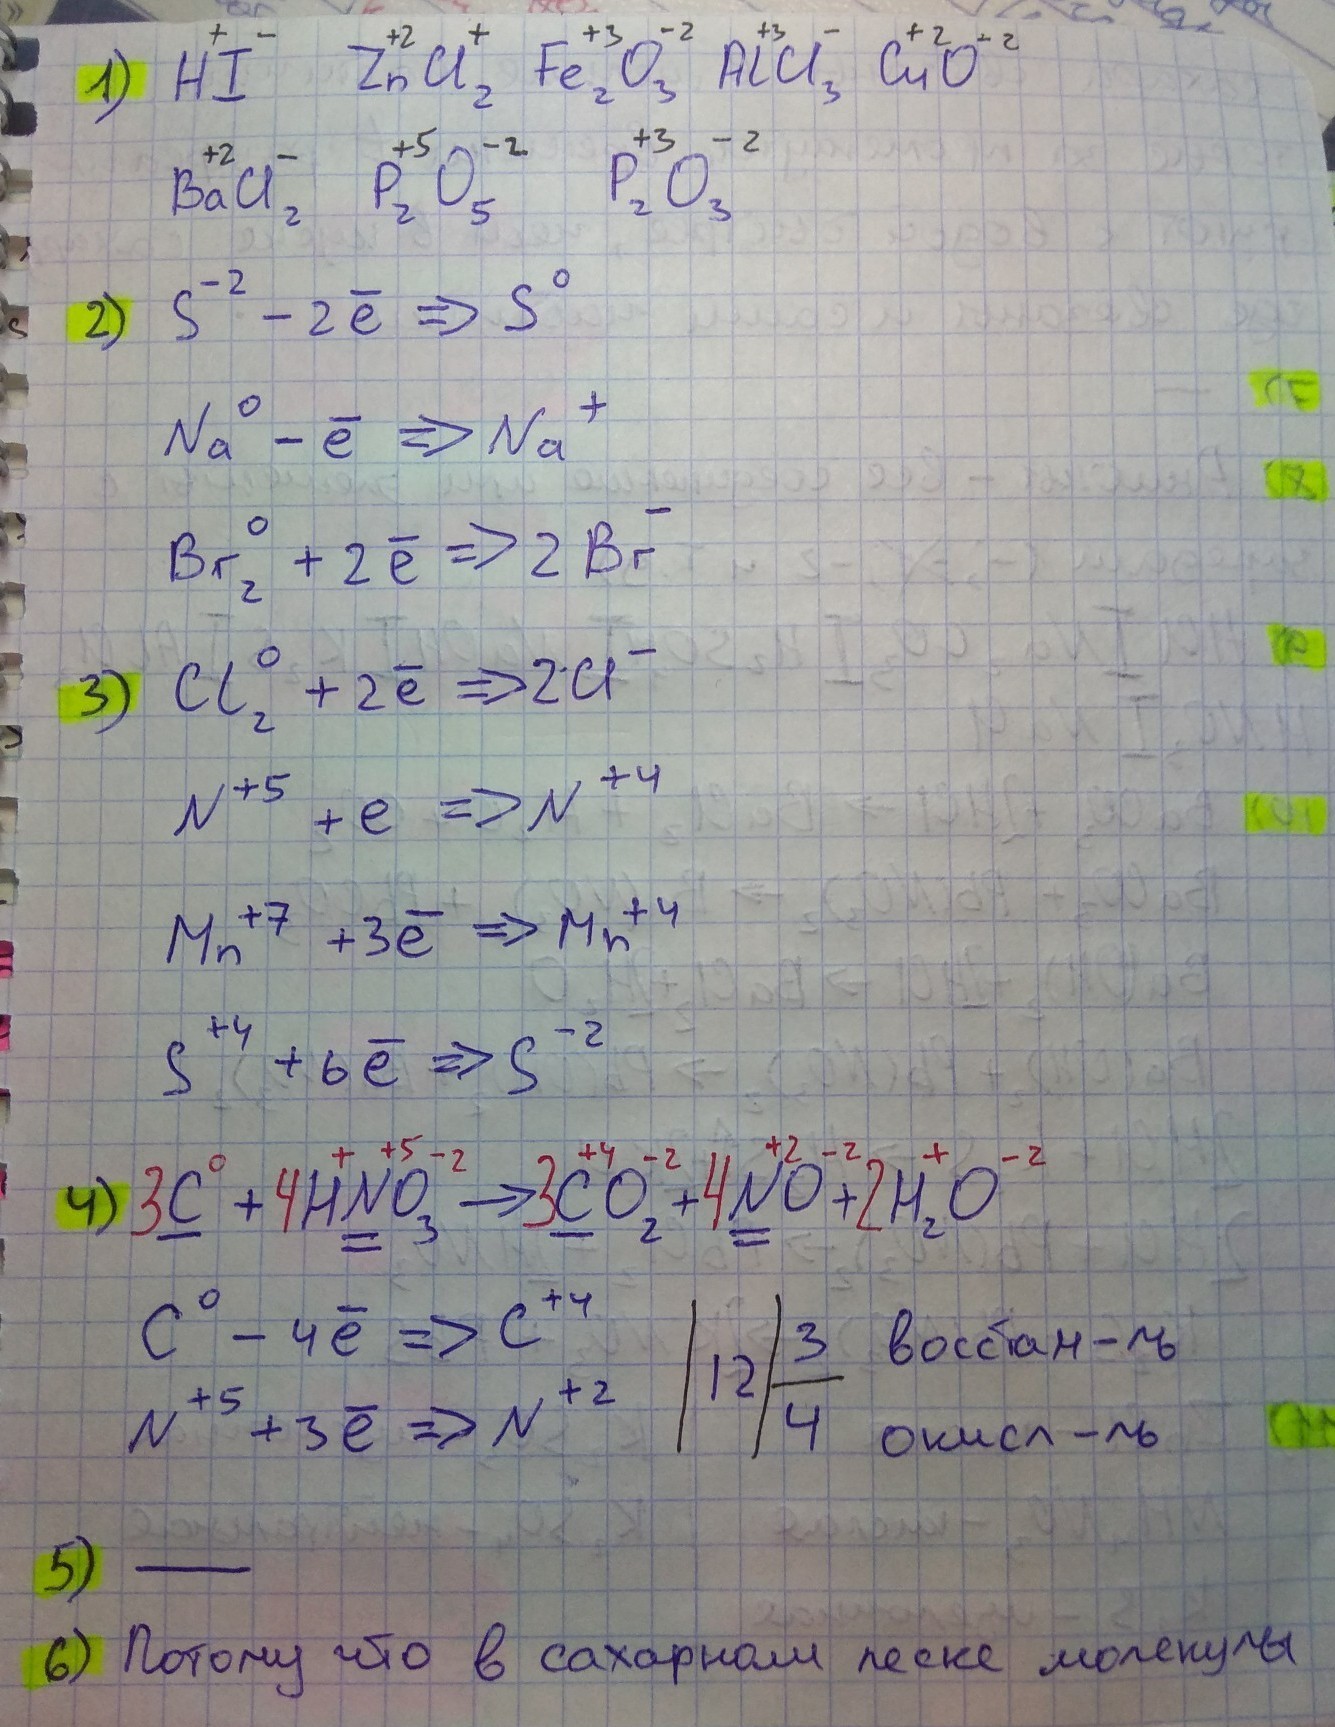 1) H⁺I⁻ Zn⁺²Cl⁺₂ Fe⁺³₂O⁻²₃ Al⁺³Cl⁻₃ Cu⁺²O⁻²
Ba⁺²Cl⁻₂ P⁺⁵₂O⁻²₅ P⁺³₂O⁻²₃
2) S⁻² - 2ē => S⁰
Na⁰ - ē => Na⁺
Br₂⁰ + 2ē => 2Br⁻
3) Cl₂⁰ + 2ē => 2Cl⁻
N⁺⁵ + e => N⁺⁴
Mn⁺⁷ + 3ē => Mn⁺⁴
S⁺⁴ + 6ē => S⁻²
4) 3C⁰ + 4H⁺N⁺⁵O⁻²₃ → 3C⁺⁴O⁻²₂ + 4N⁺²O⁻² + 2H⁺₂O⁻²
C⁰ - 4ē => C⁺⁴ | 12 | 3 восстан-ль
N⁺⁵ + 3ē => N⁺² | | 4 окисл-ль
5) —
6) Потому что в сахарном песке молекулы